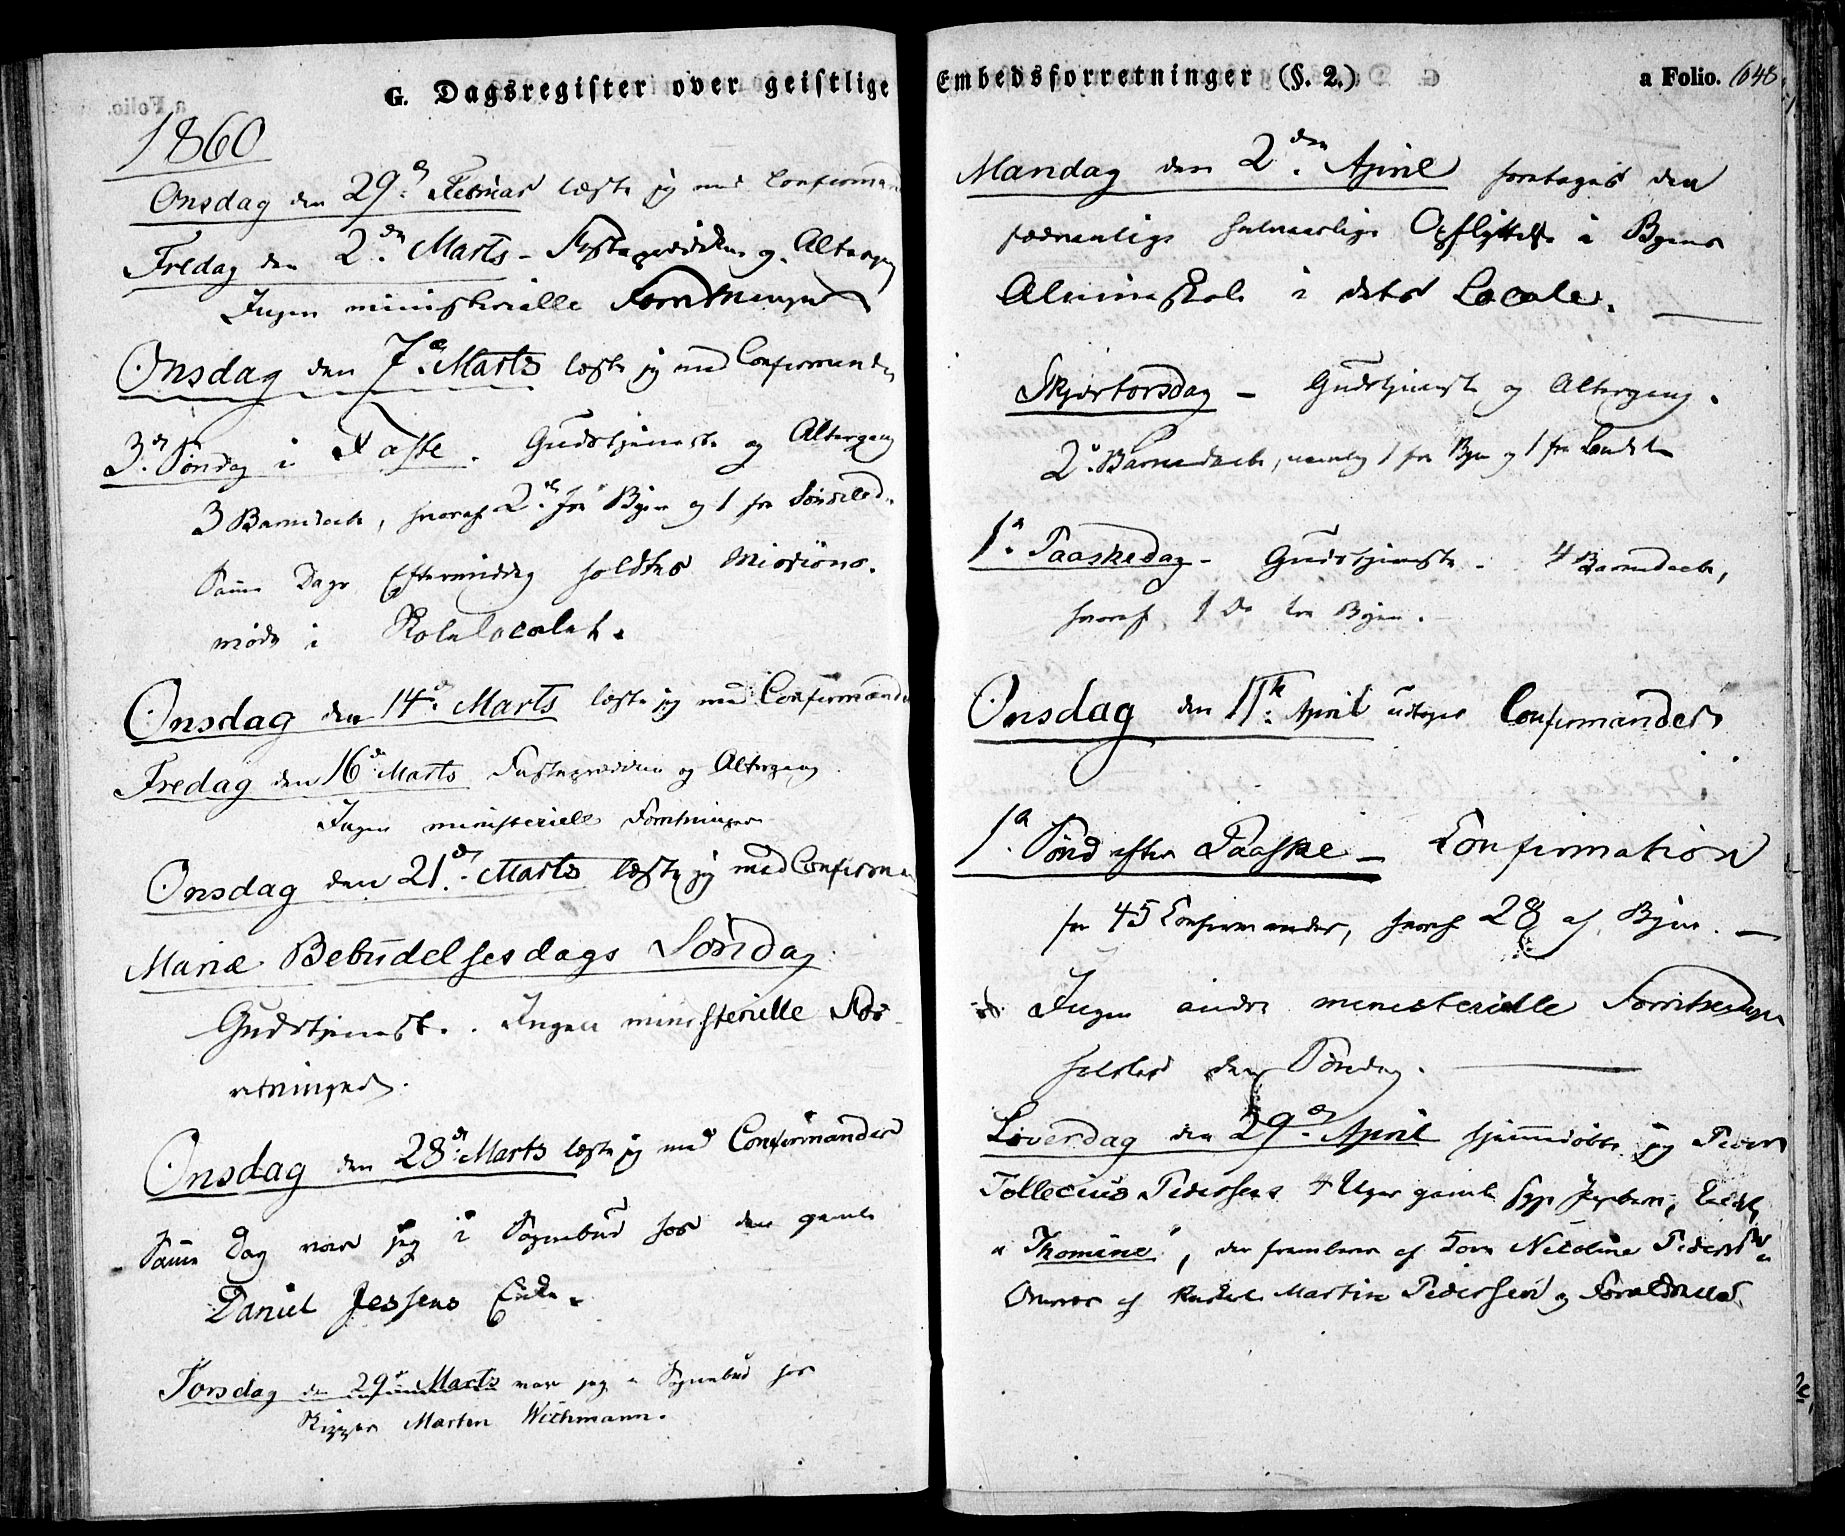 G. Dagsregister over geistlige
1860
Onsdag den 29de Februar læste jeg med Confirmand
Fredag den 2den Marts - Fasteprædiken og Altergang
Ingen ministerielle Forretninger
Onsdag den 7de Marts læste jeg med Confirmander
3die Søndag i Faste. Gudstjeneste og Altergang
3 Barnedaab, hvoraf 2de fra Byen og 1 fra Søndeled.
Samme Dags Eftermiddag holdtes Missions-
møde i Skolelocalet.
Onsdag den 14de Marts læste jeg med Confirmander
Fredag den 16de Marts Fasteprædiken og Altergang
Ingen ministerielle Forretninger
Onsdag den 21de Marts læste jeg med Confirma
Mariæ Bebudelsesdags Søndag.
Gudstjeneste. Ingen ministerielle For-
retninger.
Onsdag den 28de Marts læste jeg med Confirmander
Samme Dag var jeg i Sognebud hos den gamle
Daniel Jessens Enke.
Torsdag den 29de Marts var jeg i Sognebud hos
Skipper Marten Wichmann.
Embedsforretninger (§. 2.) a Folio. 648
Mandag den 2den April foretoges den
sædvanlige halvaarlige Opflyttelse i Byens
Almueskole i dets Locale.
Skjertorsdag - Gudstjeneste og Altergang.
2de Barnedaab, nemlig 1 fra Byen og 1 fra Landet
1ste Paaskedag - Gudstjeneste. 4 Barnedaab,
hvoraf 1 fra Byen.
Onsdag den 11te April Confirmander
1ste Sønd efter Paaske - Confirmation
for 45 Confirmander, hvoraf 28 af Byen.
Ingen andre ministerielle Forretninger
holdtes den Søndag.
Løverdag den 29de April hjemmedøbte jeg Peder
Tollecius Pedersens 4 Uger gamle syge Pigebarn, kaldt
"Thomine", der frembares af Nicoline Pedersen
af Martin Pedersen og Forældrene.